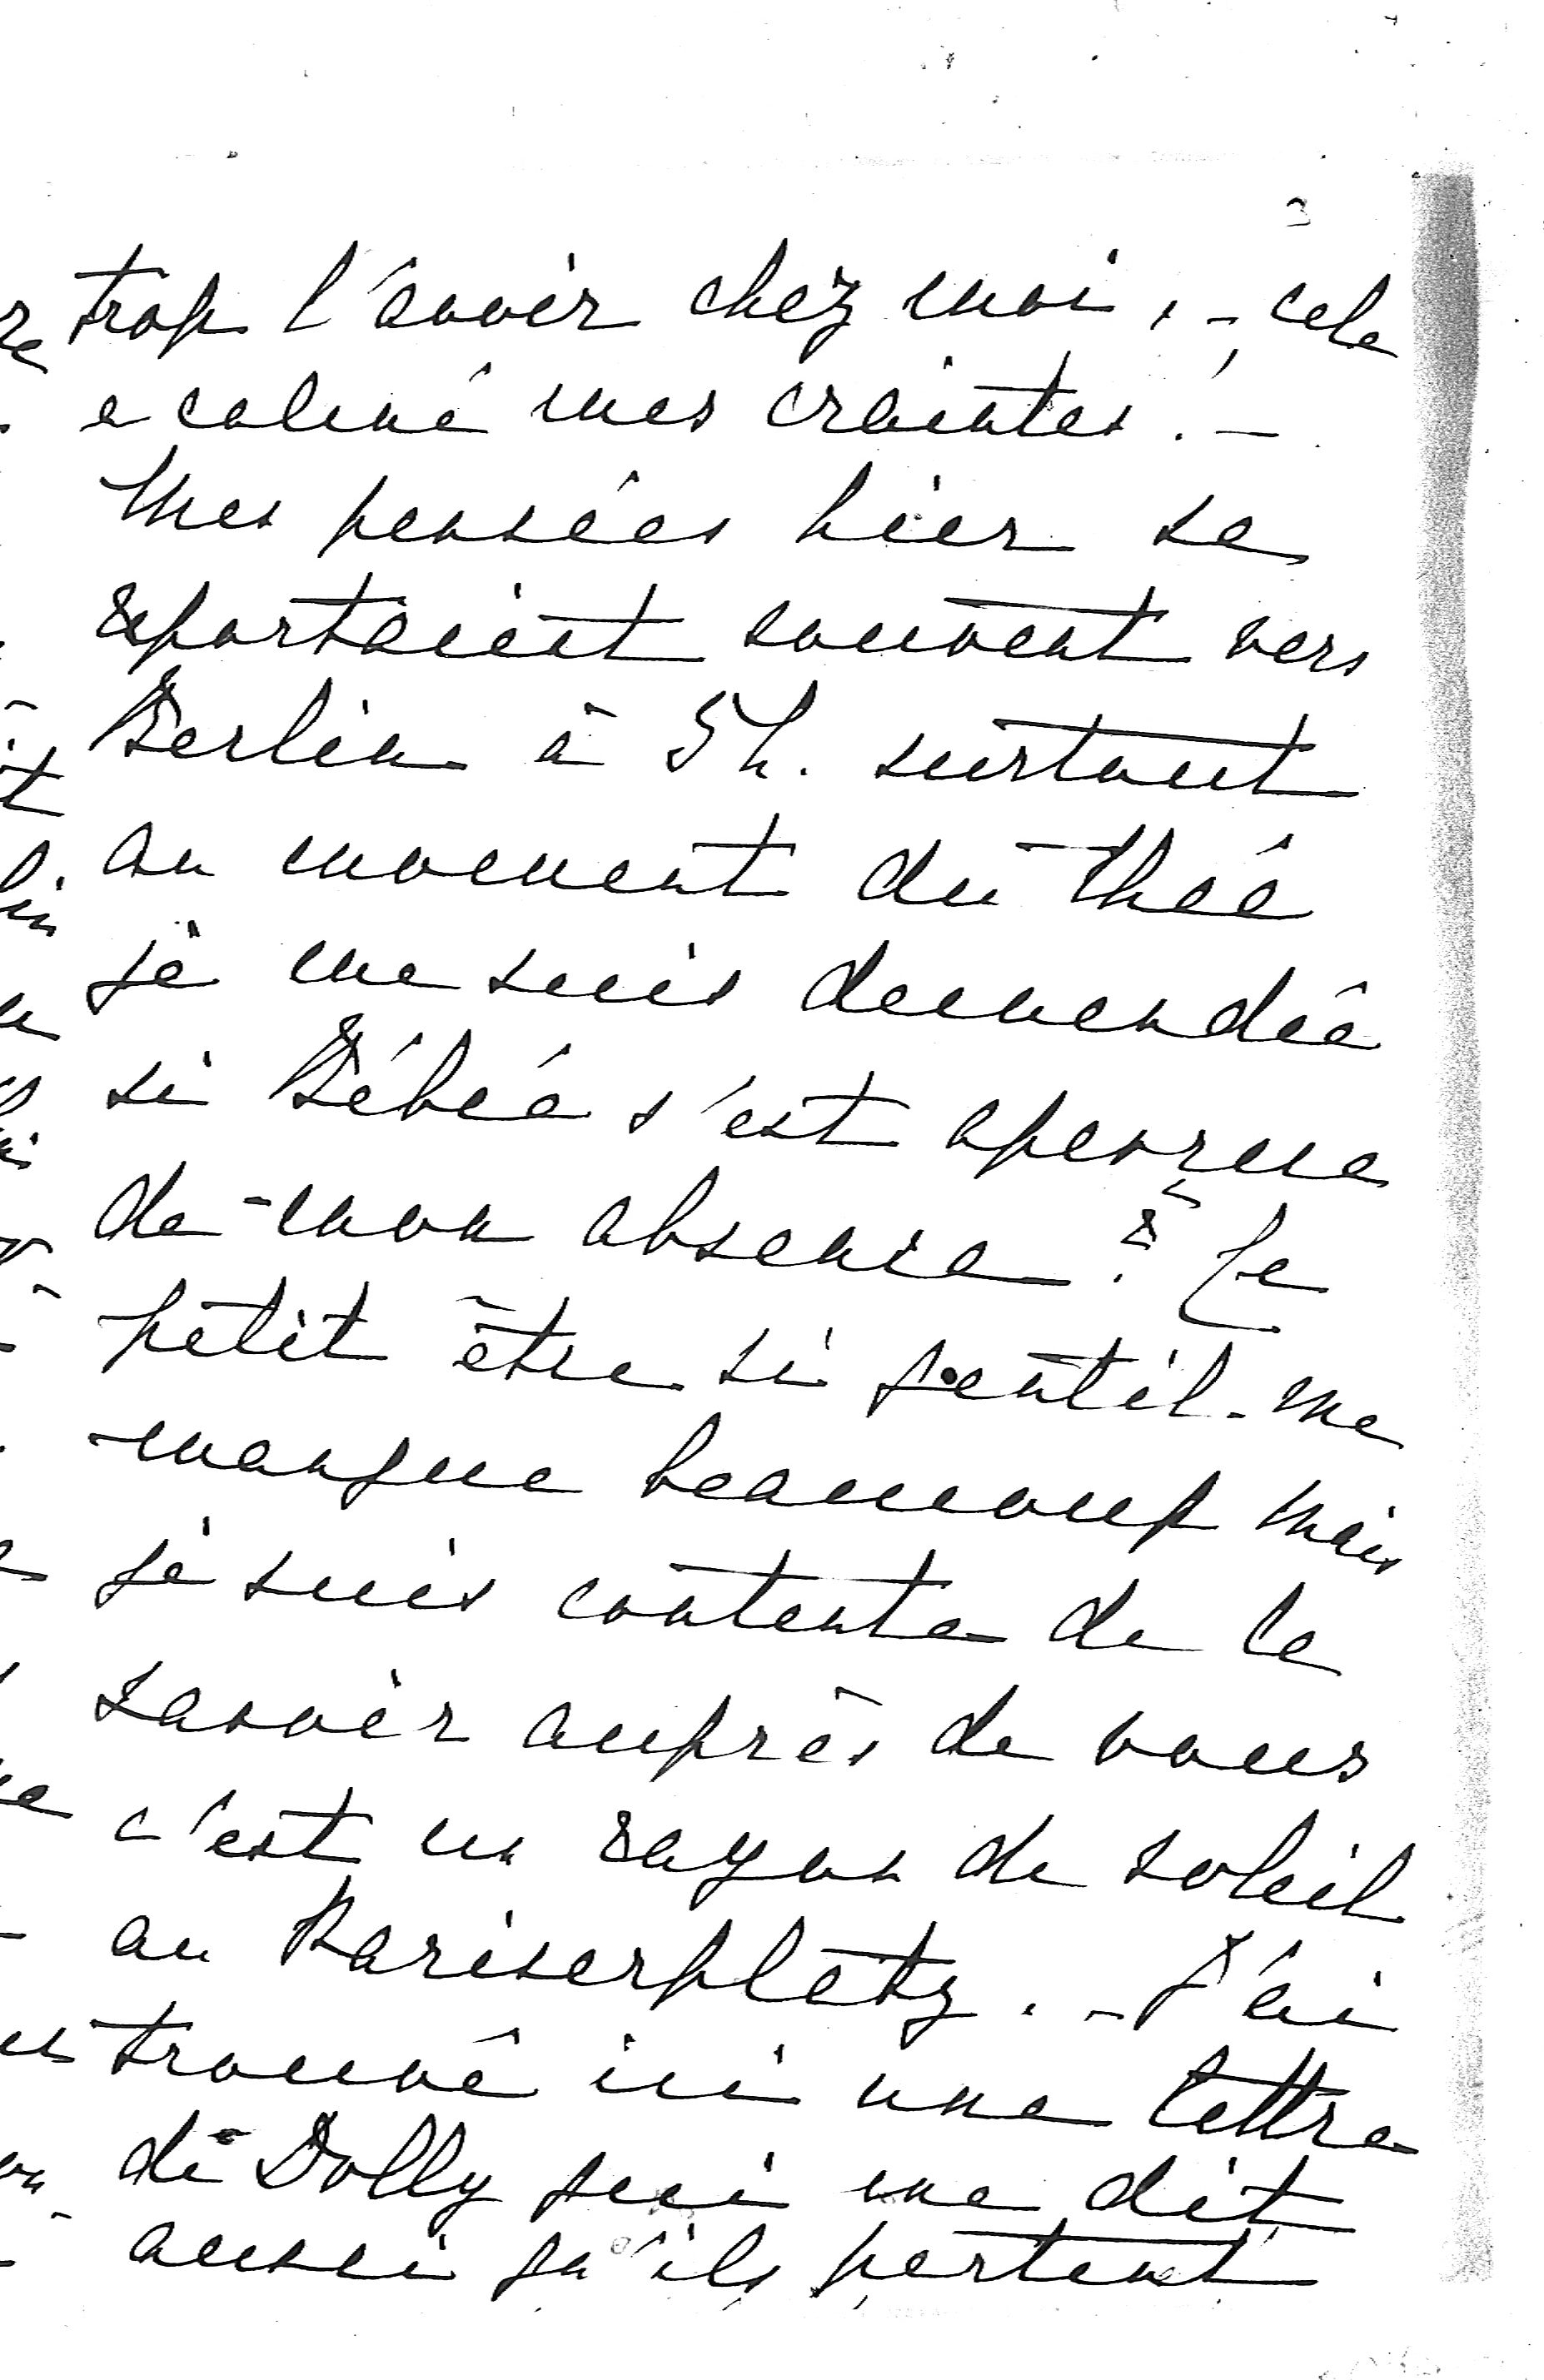 3
trop l'avoir chez moi, - cela
a calmé mes craintes. -
Mes pensées hier se
reportaient souvent vers
Berlin à 5 h. surtout
au moment du thé
je me suis demandée
si Bébée s'est aperçue
de mon absence? Ce
petit être si gentil - me
manque beaucoup mais
je suis contente de le
savoir auprès de vous
c'est un rayon de soleil
au Pariserplatz. - J'ai
trouvé ici une lettre
de Dolly qui me dit
aussi qu'ils partent